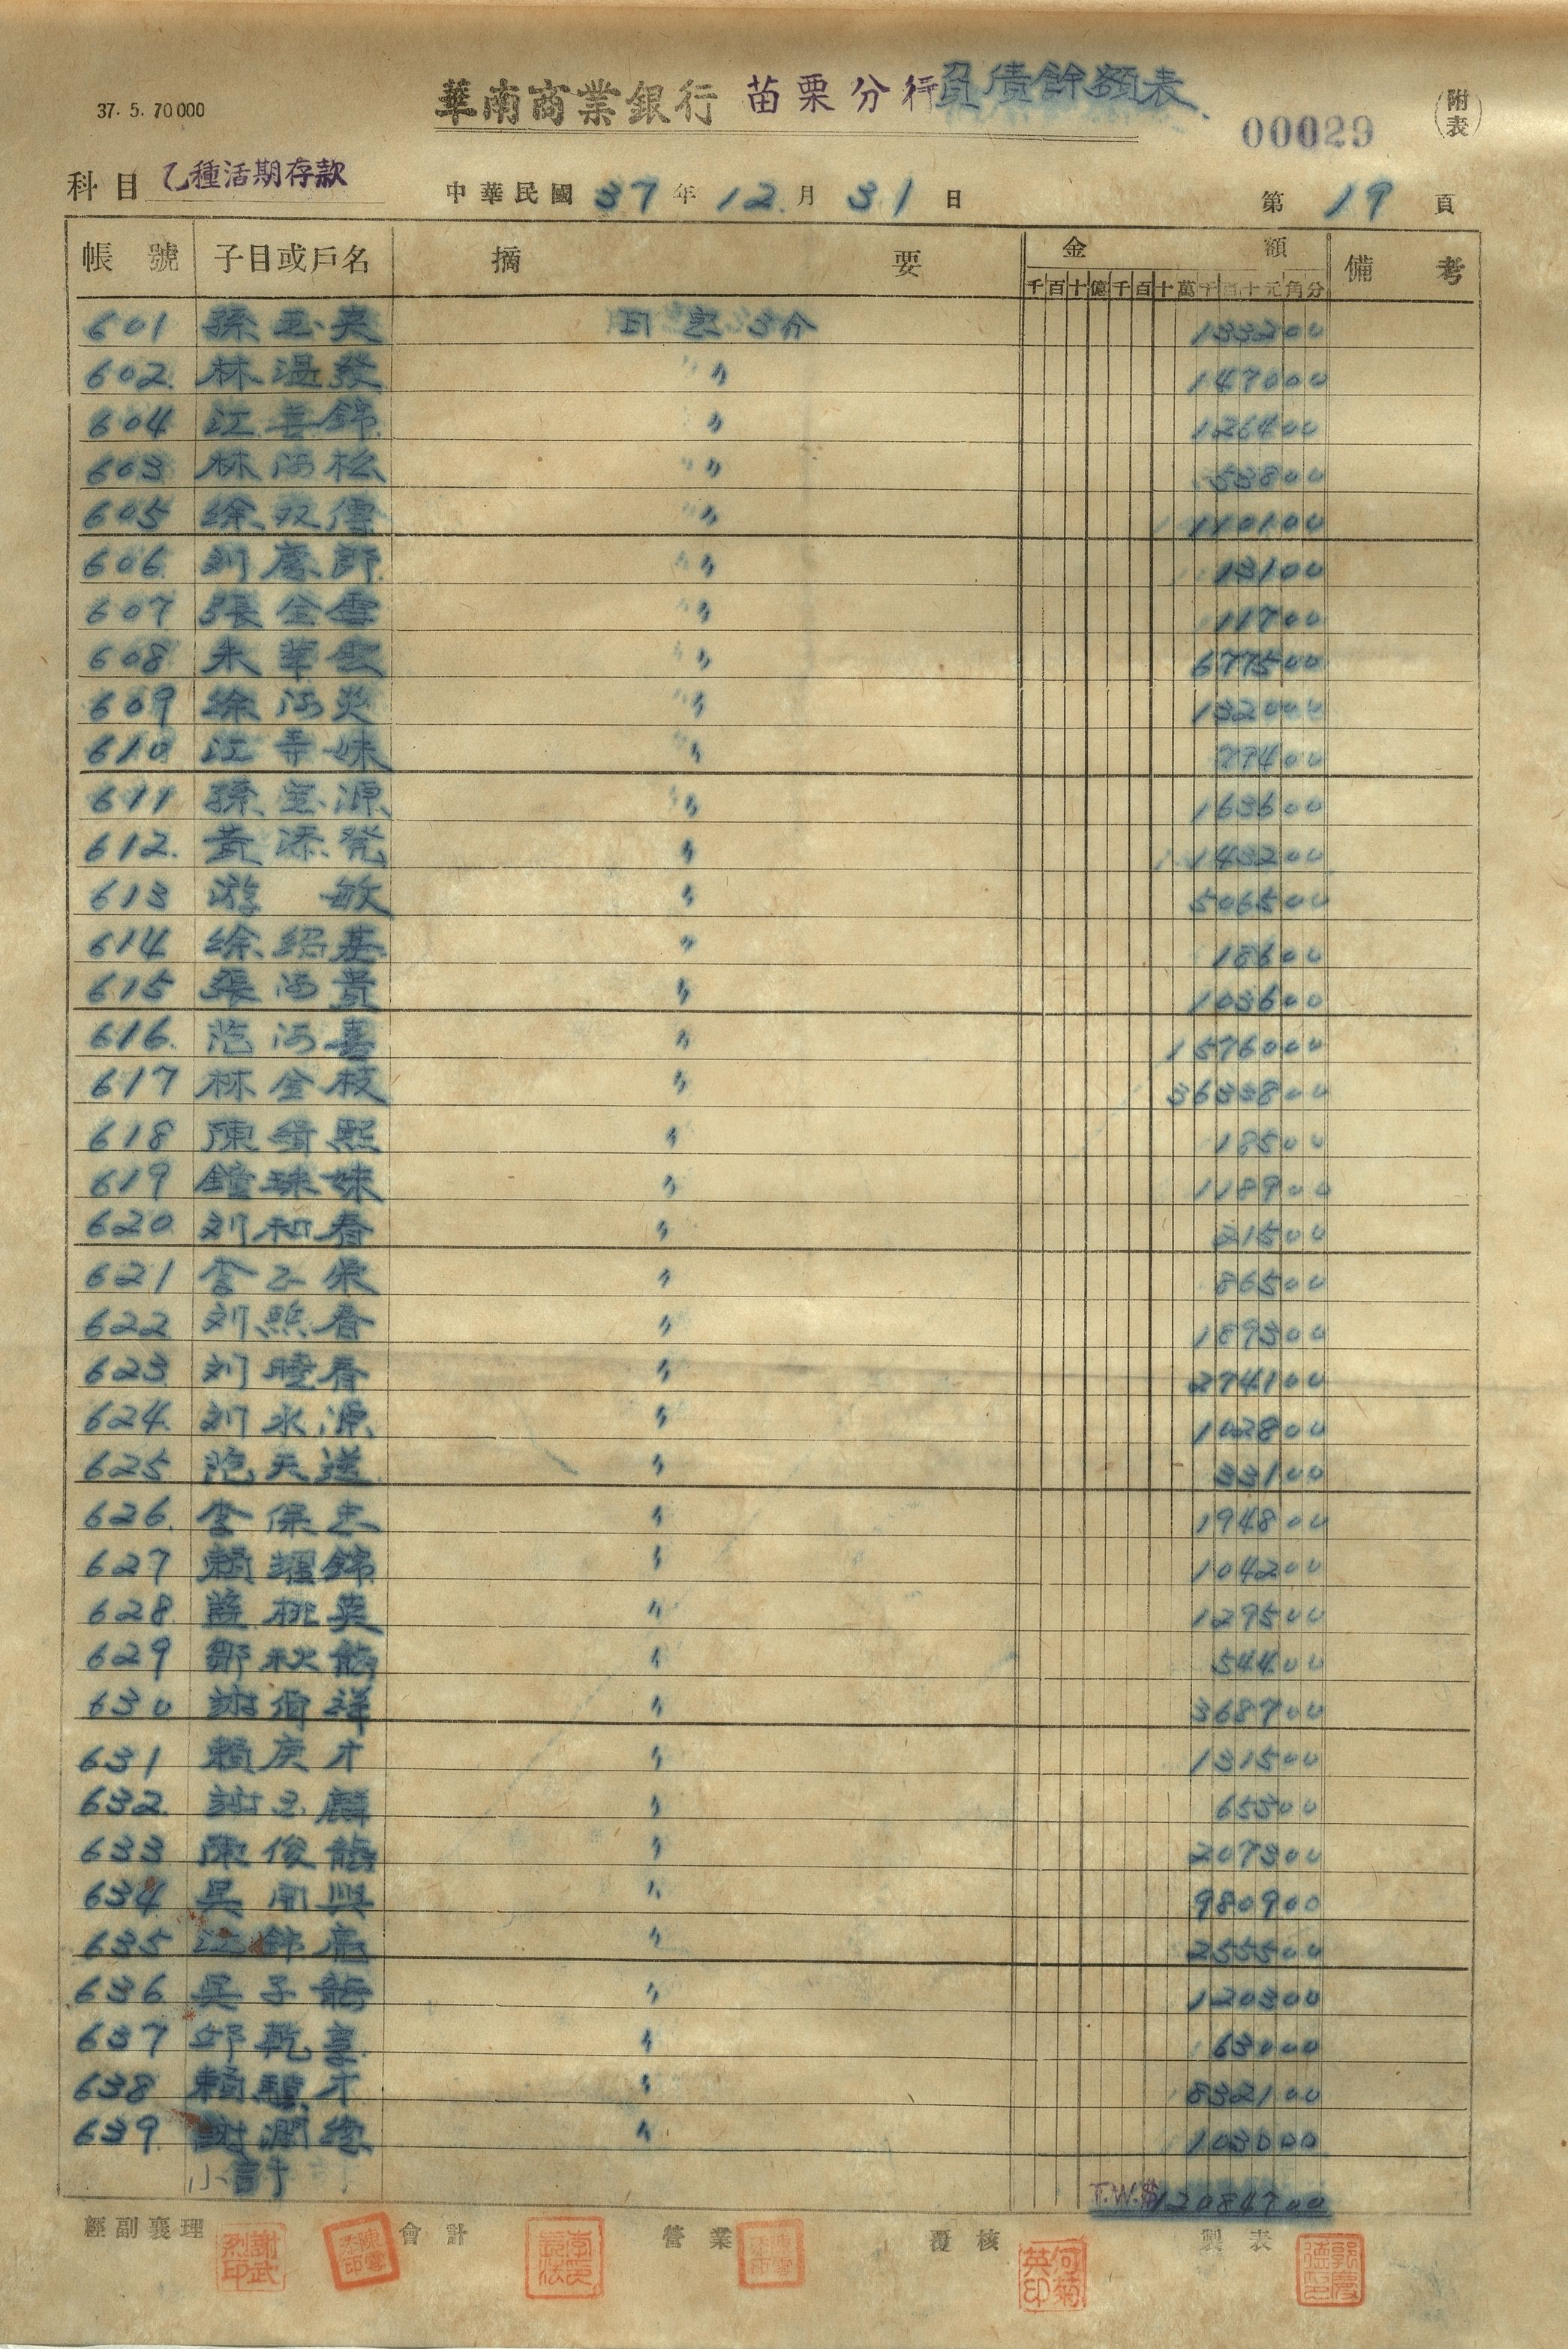 37. 5. 70000
華南商業銀行 苗栗分行負債餘額表
00029
(附表)
科目 乙種活期存款
中華民國 37 年 12 月 31 日
第 19 頁
帳號 子目或戶名 摘要 金額 備考
千百十億千百十萬千百十元角分
601 孫玉英 日 3分 133200
602. 林温發 〃 147000
604 江喜錦 〃 126400
603 林阿松 〃 53800
605 徐双傳 〃 110100
606 刘慶郎 〃 13100
607 張金雲 〃 11700
608 朱華雲 〃 677500
609 徐阿炎 〃 132000
610 江辛妹 〃 77400
611 孫宝源 〃 163600
612. 黃添発 〃 143200
613 游敏 〃 506500
614 徐紹基 〃 18600
615 張阿貴 〃 103600
616. 范阿喜 〃 1576000
617 林金枝 〃 3633800
618 陳緝熙 〃 18500
619 鐘珠妹 〃 118900
620 刘和春 〃 21500
621 李玉榮 〃 86500
622 刘熙春 〃 189300
623 刘曉春 〃 274100
624. 刘永源 〃 102800
625 范天送 〃 33100
626. 李保忠 〃 194800
627 賴耀錦 〃 104200
628 桃英 〃 129500
629 鄒秋龍 〃 54400
630 謝祥 〃 368700
631 賴庚才 〃 131500
632. 謝玉麟 〃 65300
633 陳俊龍 〃 207300
634 吳開興 〃 980900
635 江錦 〃 255500
636 吳子龍 〃 120300
637 邱乾享 〃 63000
638 賴驥才 〃 832100
639. 謝潤德 〃 103000
小計 T.W.$12084700
經副襄理 會計 營業 覆核 製表
謝武烈印
何菊英印